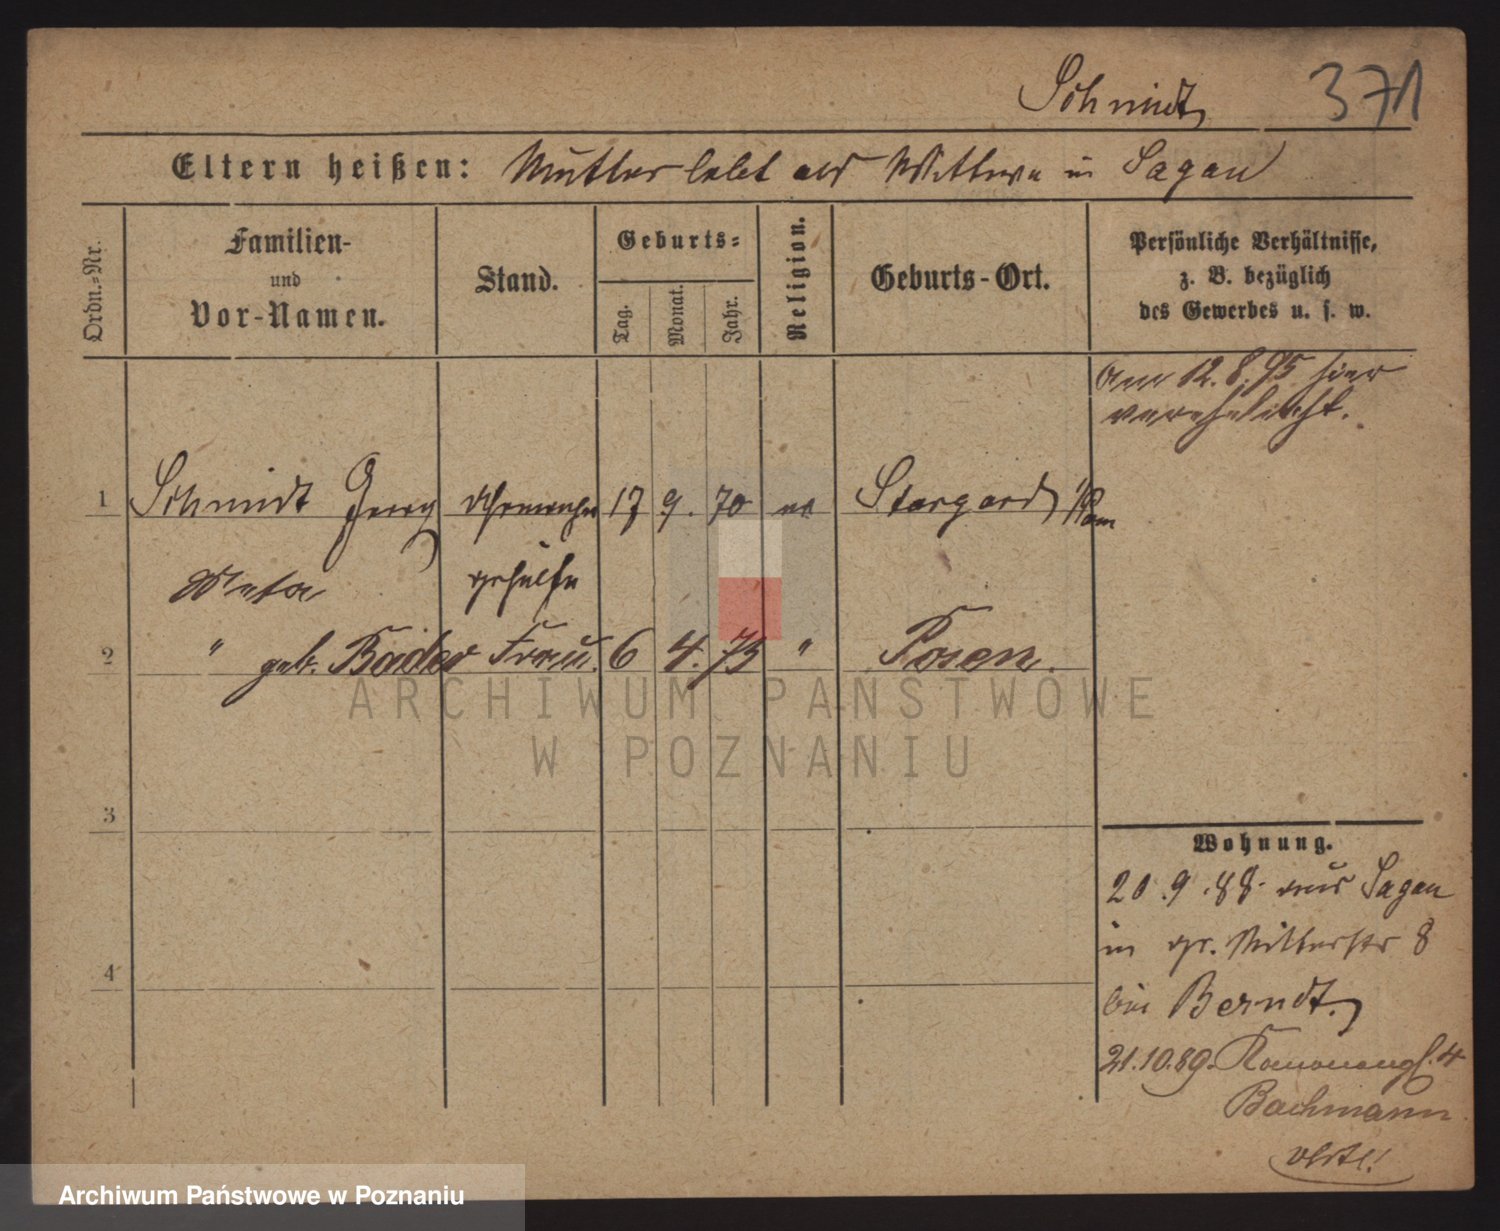 Schmidt 371
Eltern heißen: Mutter lebt als Wittwe in Sagan
Ordn.-Nr.
Familien- und Vor-Namen.
Stand.
Geburts-
Tag. Monat. Jahr.
Religion.
Geburts-Ort.
Persönliche Verhältnisse,
z. B. bezüglich
des Gewerbes u. s. w.
Am 12.8.95 hier
verehelicht.
1 Schmidt Georg 17 9. 70 ev Stargard i/Pom
Meta gehülfe
2 " geb. Bader Frau. 6 4. 73 " Posen.
ARCHIWUM PAŃSTWOWE
W POZNANIU
3
4
Wohnung.
20.9.88. aus Sagan
in gr. Ritterstr 8
bei Berndt.
21.10.89. Kanonengl. 4
Bachmann
Archiwum Państwowe w Poznaniu